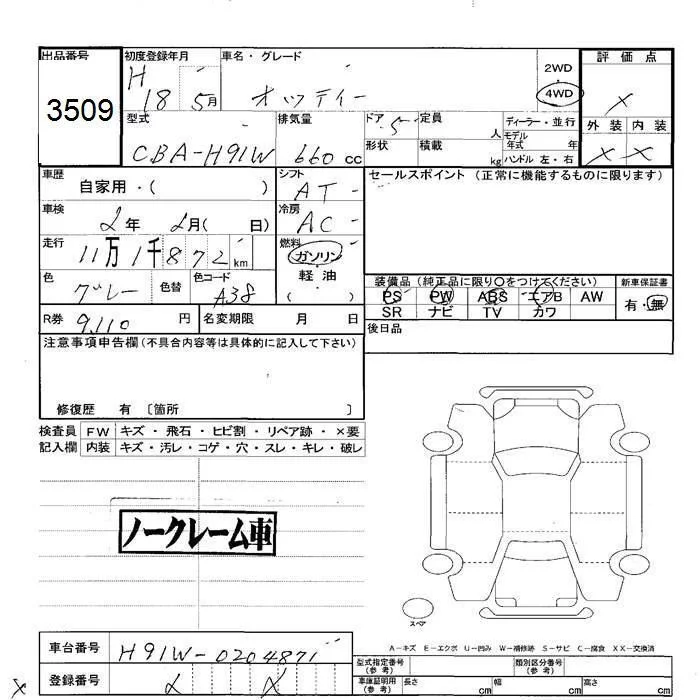 出品番号 初度登録年月 車名・グレード 評価点
3509 H 18 5月 オッティー 2WD 4WD ×
型式 排気量 ドア 5 定員 人 ディーラー・並行 外装 内装
CBA-H91W 660cc 形状 積載 kg モデル年式 年 ハンドル 左・右 × ×
車歴 自家用・( ) シフト AT セールスポイント(正常に機能するものに限ります)
車検 2年 2月( 日) 冷房 AC
走行 11万1千872km 燃料 ガソリン
軽・油
色 グレー 色替 色コード A38 ( )
装備品(純正品に限り○をつけてください) 新車保証書
PS PW ABS エアB AW 有・無
SR ナビ TV カワ
R券 9,110 円 名変期限 月 日
後日品
注意事項申告欄(不具合内容等は具体的に記入して下さい)
修復歴 有 〔箇所 〕
検査員 FW キズ・飛石・ヒビ割・リペア跡・×要
記入欄 内装 キズ・汚レ・コゲ・穴・スレ・キレ・破レ
ノークレーム車
スペア
A-キズ E-エクボ U-凹み W-補修跡 S-サビ C-腐食 XX-交換済
車台番号 H91W-0204871
型式指定番号(参考) 類別区分番号(参考)
登録番号
車庫証明用(参考) 長さ cm 幅 cm 高さ cm
×